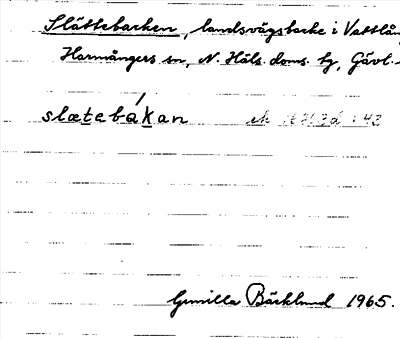 Slättebacken, landsvägsbacke i Vattlån
Harmångers sn, N. Häls. doms. hg, Gävl.
slætebákan ek
Gunilla Bäcklund 1965.